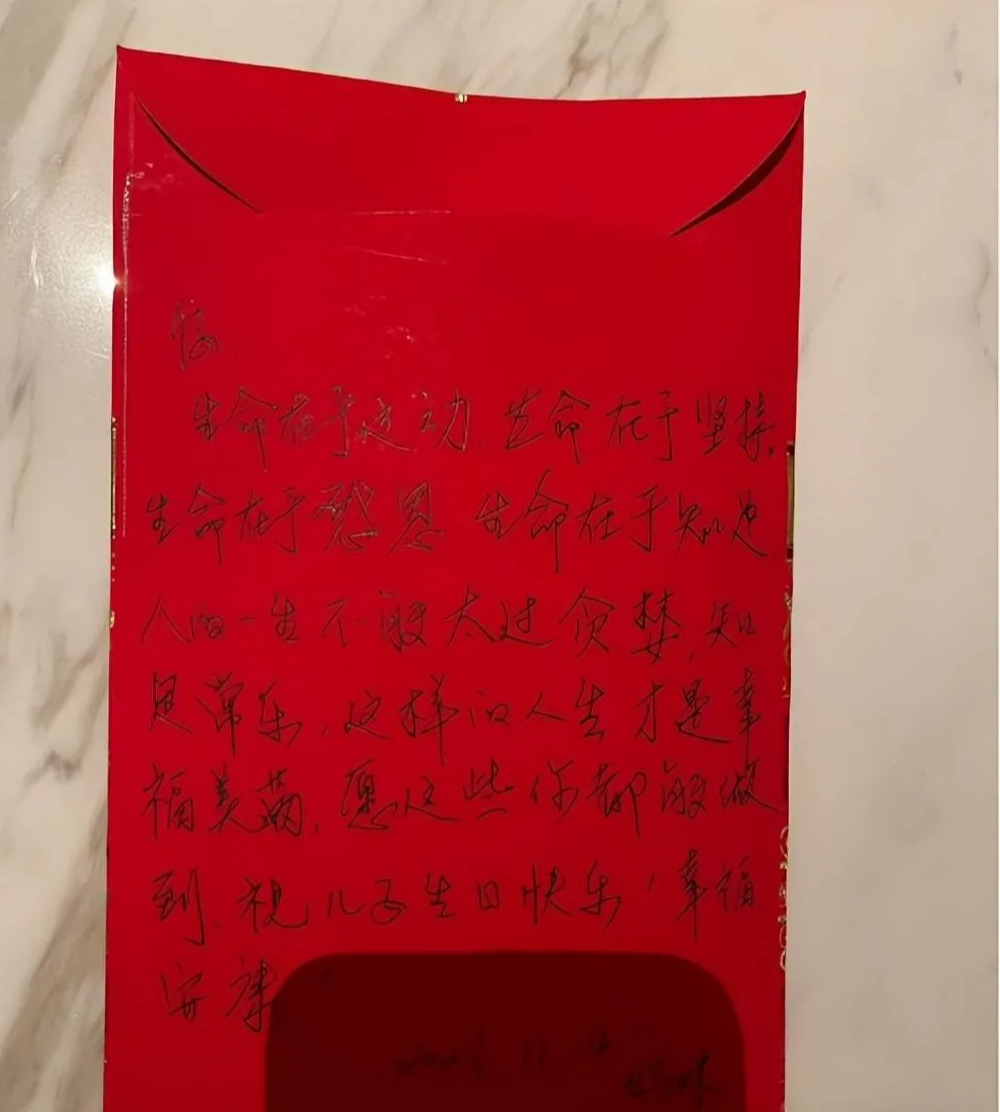 生命在于运动,生命在于坚持,
生命在于感恩 生命在于知足
人的一生不能太过贪婪,知
足常乐,这样的人生才是幸
福美满,愿这些你都能做
到,祝儿子生日快乐!幸福
安康